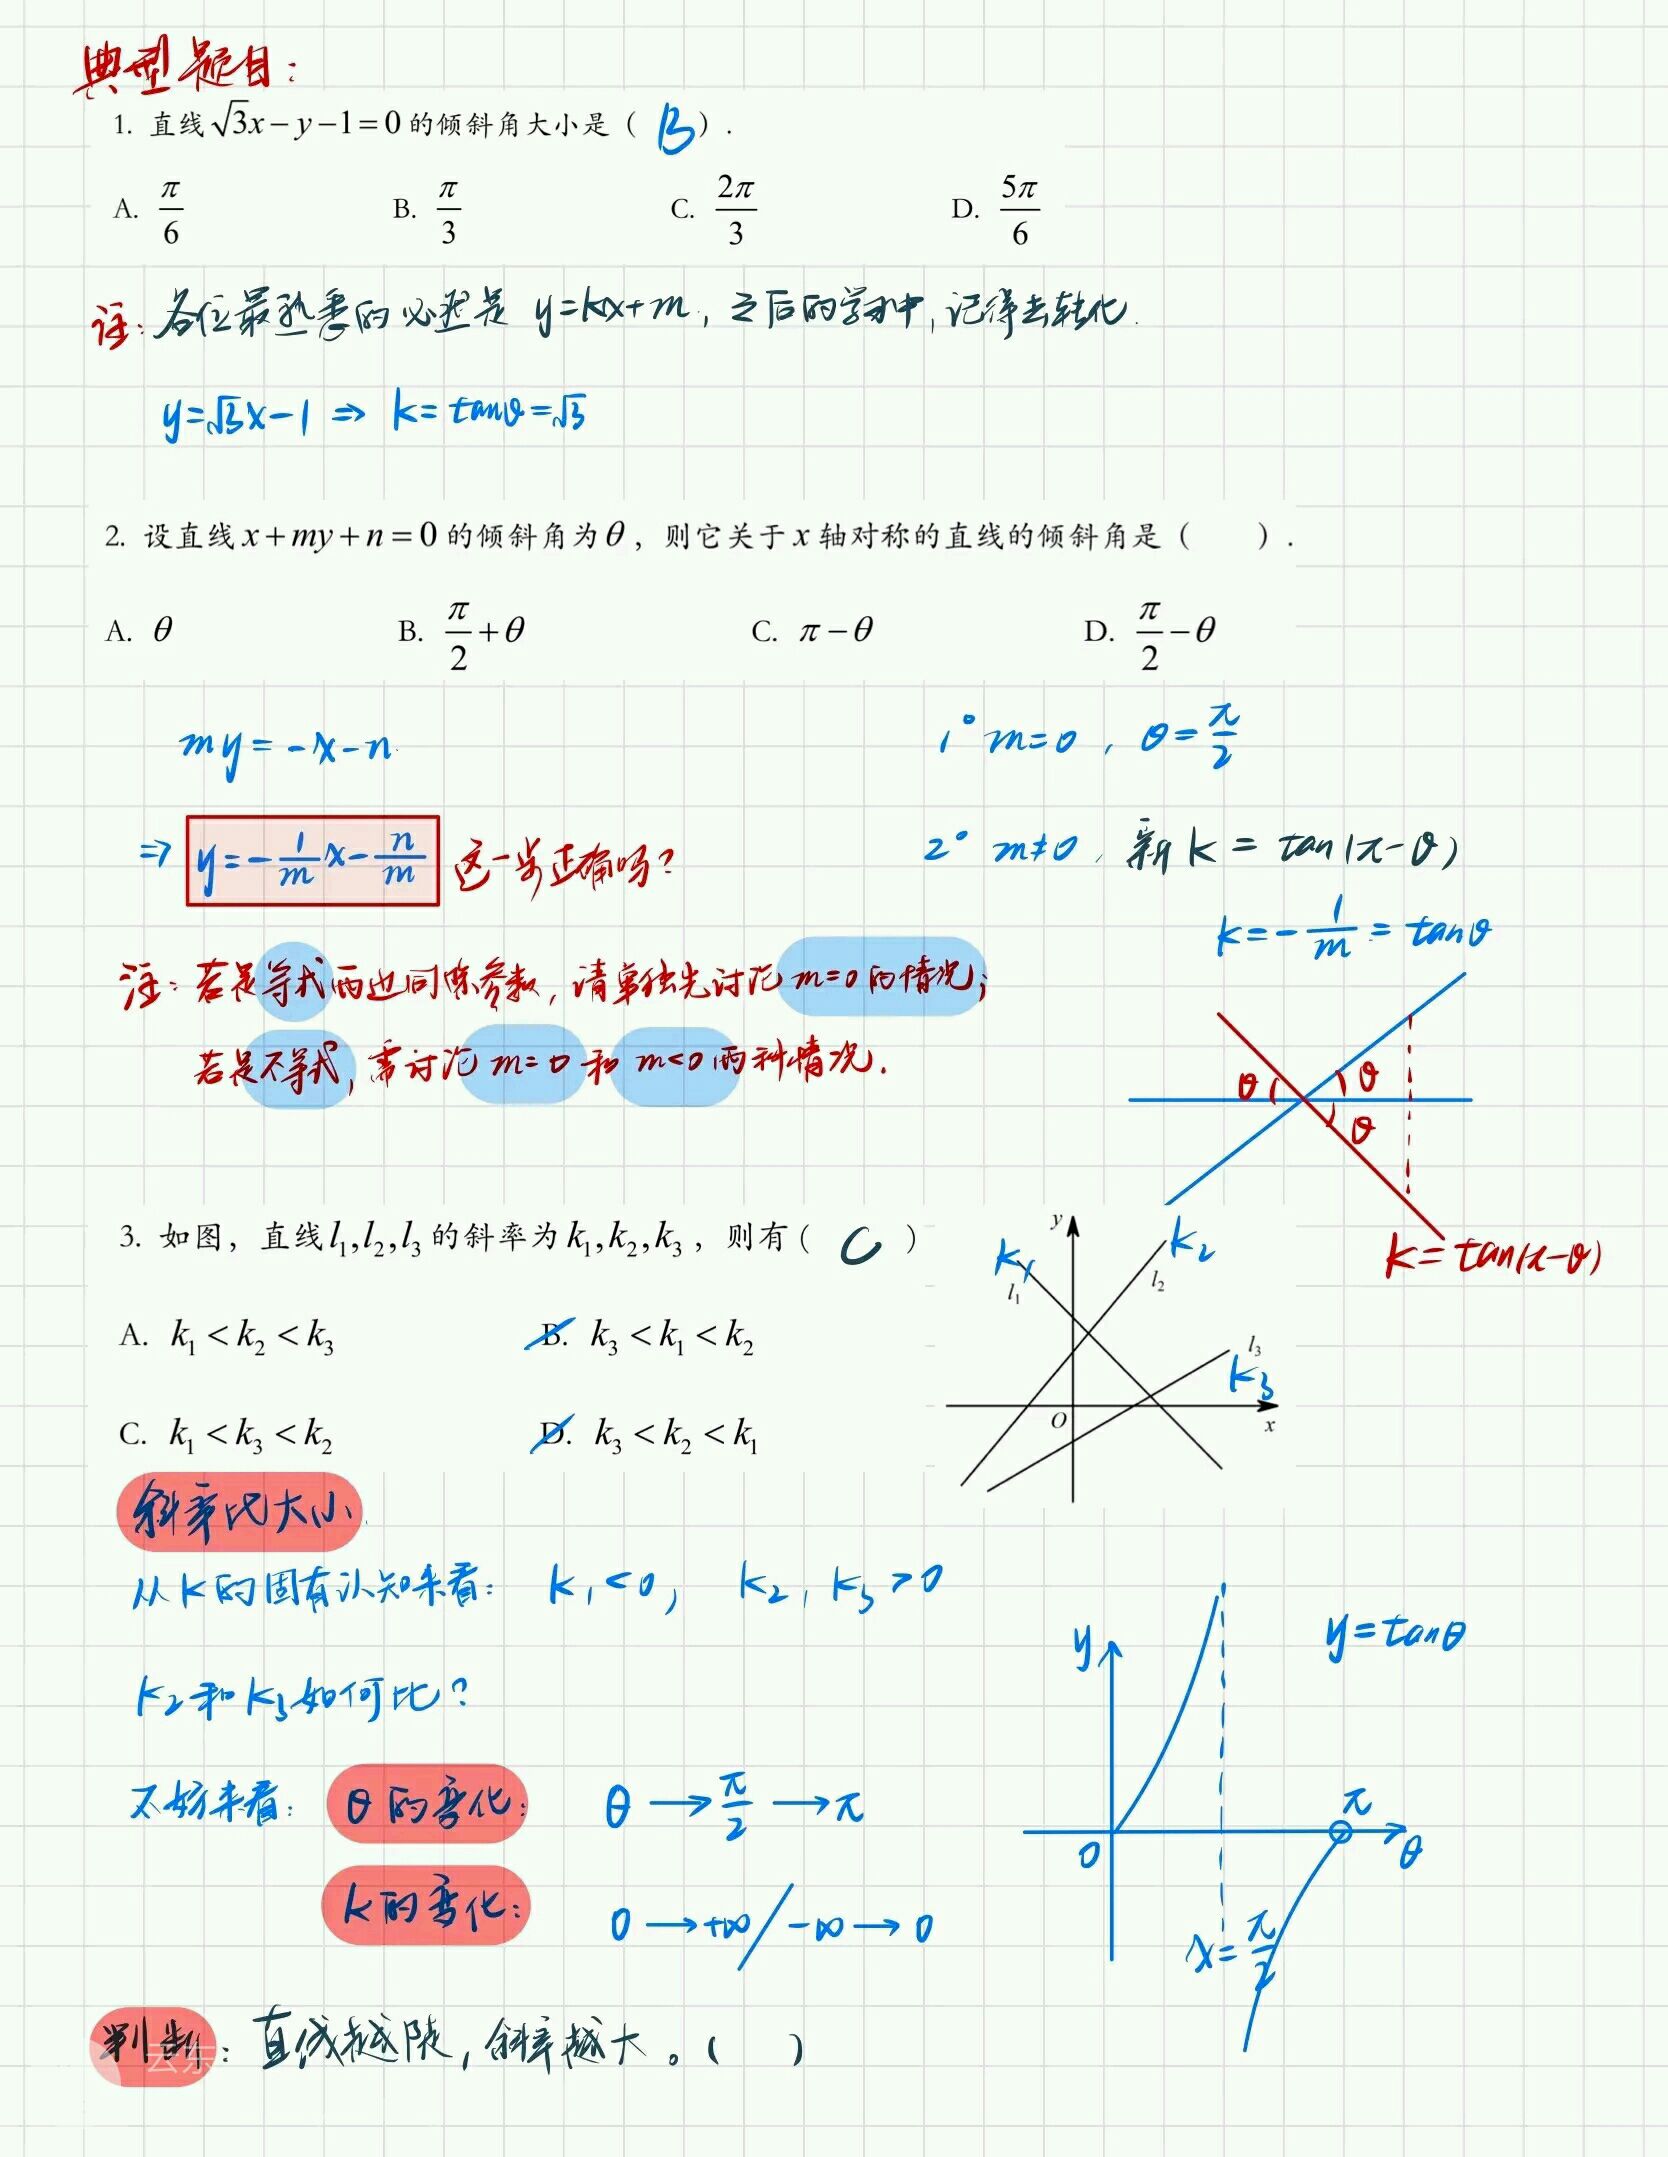 典型题目：
1. 直线√3x－y－1＝0的倾斜角大小是（ B ）.
A. π/6 B. π/3 C. 2π/3 D. 5π/6
注：各位最熟悉的必然是 y=kx+m，之后的学习中，记得去转化.
y=√3x-1 ⇒ k=tanθ=√3
2. 设直线x+my+n=0的倾斜角为θ，则它关于x轴对称的直线的倾斜角是（ ）.
A. θ B. π/2+θ C. π－θ D. π/2－θ
my=-x-n.
⇒ y=-1/m x-n/m 这一步正确吗？
注：若是等式两边同除参数，请单独先讨论m=0的情况；
若是不等式，需讨论m=0和m<0两种情况.
1° m=0，θ=π/2
2° m≠0，新k=tan(π-θ)
k=-1/m=tanθ
θ θ
θ
k=tan(π-θ)
3. 如图，直线l₁,l₂,l₃的斜率为k₁,k₂,k₃，则有（ C ）
A. k₁<k₂<k₃ B. k₃<k₁<k₂
C. k₁<k₃<k₂ D. k₃<k₂<k₁
y
k₁ k₂
l₁ l₂
l₃
k₃
O x
斜率比大小.
从k的固有认知来看： k₁<0， k₂，k₃>0
k₂和k₃如何比？
不妨来看： θ的变化： θ→π/2→π
k的变化： 0→+∞/-∞→0
y y=tanθ
π
0 θ
x=π/2
判断：直线越陡，斜率越大。（ ）